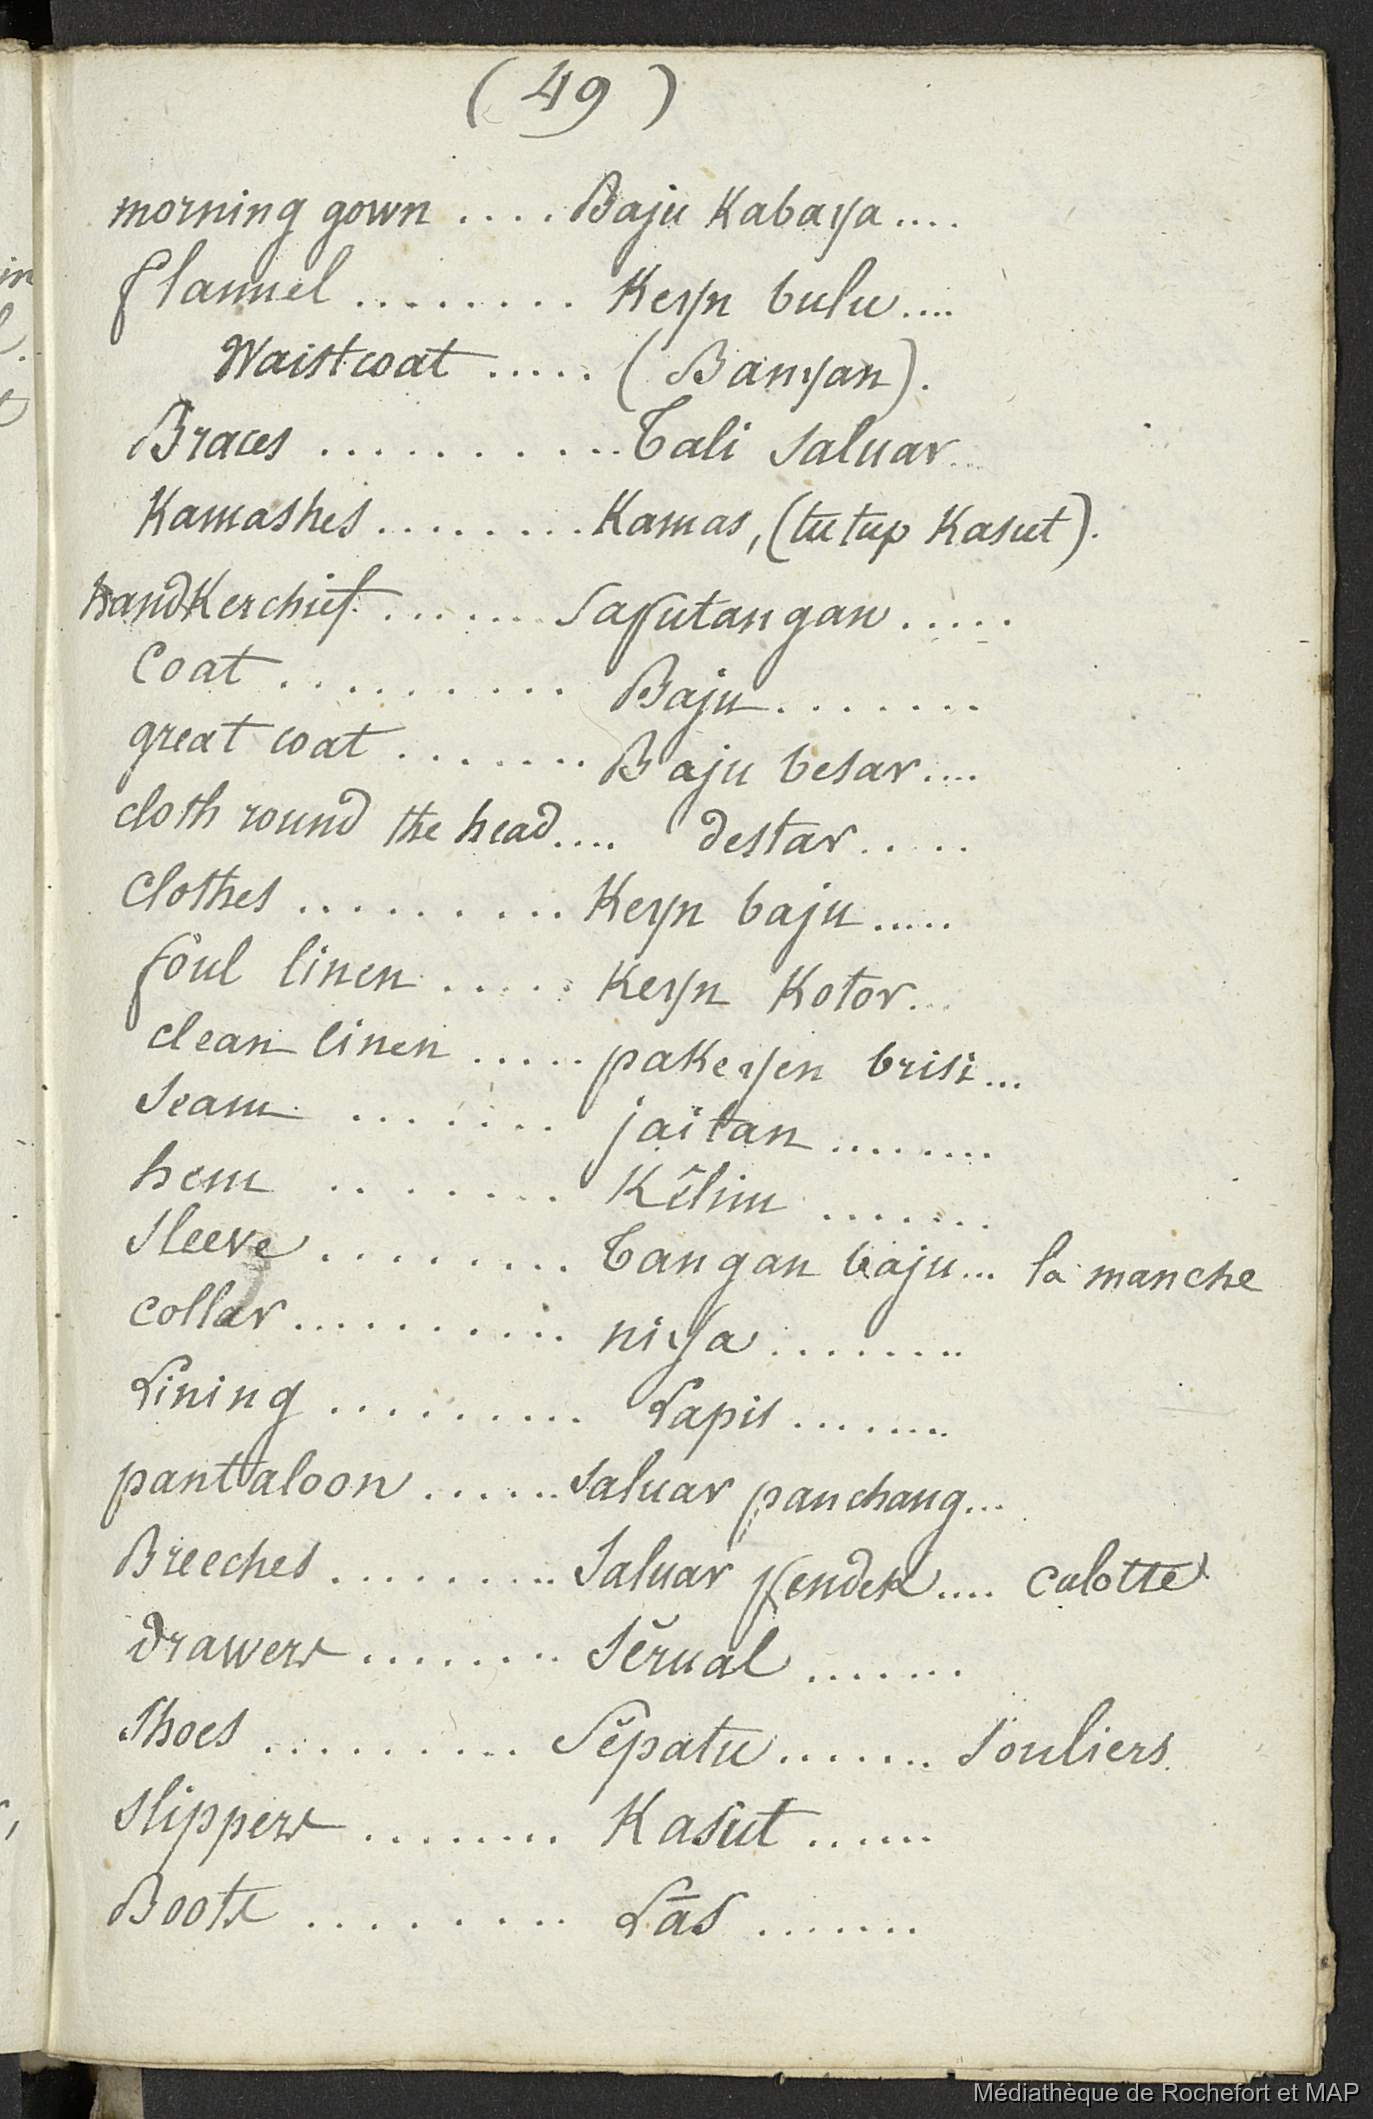 ( 49 )
morning gown .... Baju Kabaya ....
flannel ........ Keyn bulu ....
Waistcoat ..... (Banyan).
Braces .......... Tali saluar ...
Kamashes ........ Kamas, (tutup Kasut).
handKerchief ...... saputangan .....
coat ......... Baju .......
great coat ....... Baju besar ....
cloth round the head .... destar .....
clothes ......... Keyn baju .....
foul linen ..... Keyn Kotor ...
clean linen ..... pakeyen brisi ...
seam ....... jaïtan ........
hem ....... Kêlim .......
sleeve ........ Tangan baju ... la manche
collar .......... niya ........
Lining ......... Lapis .......
pantaloon ...... saluar panchang ...
Breeches ......... Saluar pendek .... culotte
drawers ........ sĕrual .......
Shoes ......... Sĕpatu ....... souliers.
slippers ........ Kasut ......
Boots ........ Lās .......
in
Médiathèque de Rochefort et MAP